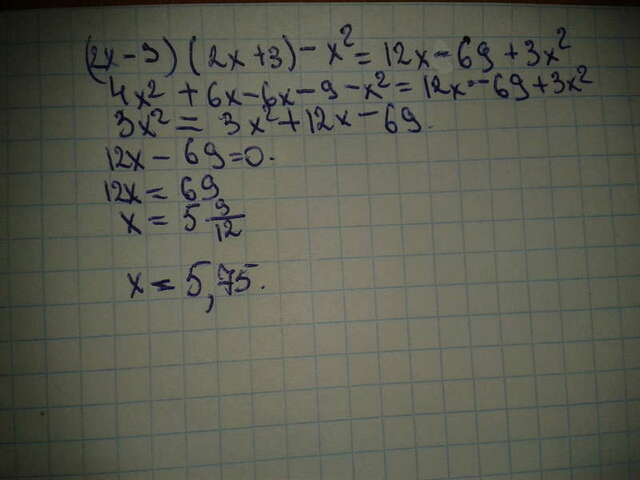 (2x-3)(2x+3)-x² = 12x-69+3x²
4x²+6x-6x-9-x² = 12x-69+3x²
3x² = 3x²+12x-69.
12x-69=0.
12x = 69
x = 5 9/12
x = 5,75.